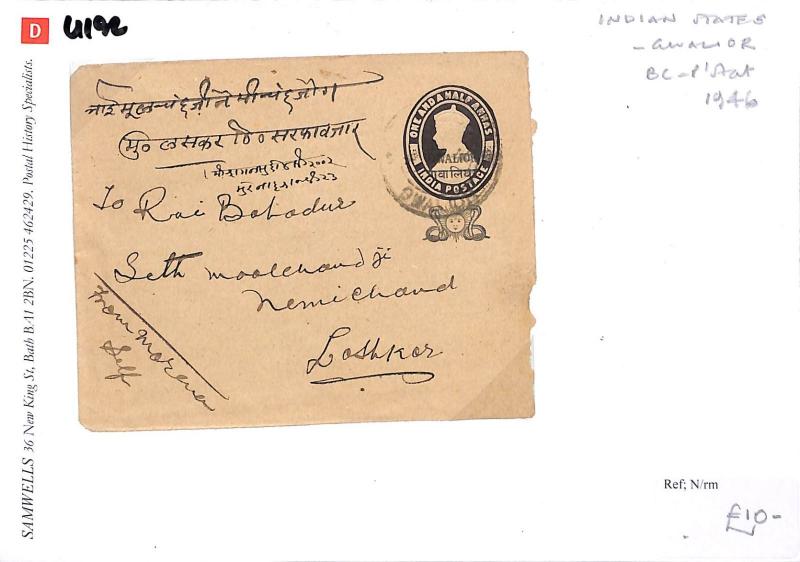 D
U192
INDIAN STATES
- GWALIOR
BC - P'Stat
1946
SAMWELLS 36 New King St, Bath BA1 2BN. 01225 462429. Postal History Specialists.
ONE AND A HALF ANNAS
GWALIOR
ग्वालियर
INDIA POSTAGE
मु० लसकर ठि० सराफा बजार
To Rai Bahadur
Seth Moolchand ji
Nemichand
Lashkar
From Morena
Self
Ref; N/rm
£10-